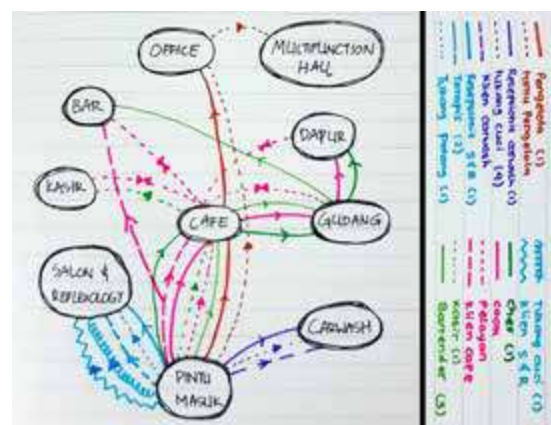 OFFICE
MULTIFUNCTION
HALL
BAR
DAPUR
KASIR
CAFE
GUDANG
SALON &
REFLEXOLOGY
CARWASH
PINTU
MASUK
Pengelola (1)
Tamu Pengelola
Resepsionis carwash (1)
Tukang cuci (4)
Klien carwash
Resepsionis S&R (1)
Terapis (2)
Tukang Potong (1)
Tukang cuci (1)
Klien S&R
Chef (1)
Cook
Pelayan
Klien cafe
Kasir (1)
Bartender (3)